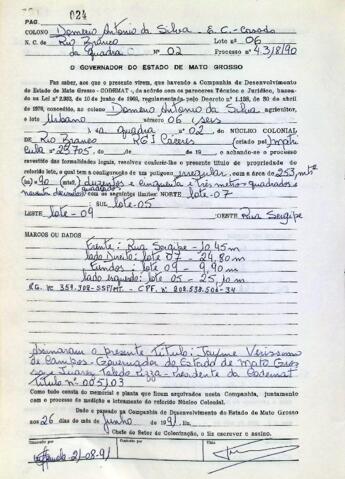 PAG. 024
COLONO Domério Antonio da Silva - E. C. - Casado
N. C. de Rio Branco Lote nº 06
da Quadra C Nº 02 Processo nº 4.318/90
O GOVERNADOR DO ESTADO DE MATO GROSSO
Faz saber, aos que o presente virem, que havendo a Companhia de Desenvolvimento
do Estado de Mato Grosso - CODEMAT -, de acôrdo com os pareceres Técnico e Jurídico, basea-
do na Lei nº 2.083, de 10 de junho de 1963, regulamentada pelo Decreto nº 1.138, de 30 de abril
de 1970, concedido ao colono Domério Antonio da Silva agricultor,
o lote Urbano número 06 / seis
na Quadra nº 02 do NÚCLEO COLONIAL
DE Rio Branco RGI Cáceres (criado pela Matrí
cula nº 23.705 de de de 19 ), e achando-se o processo
revestido das formalidades legais, resolveu conferir-lhe o presente título de propriedade do
referido lote, o qual tem a configuração de um polígono irregular com a área de 253 mts
(m) 90 (mts²) duzentos e cinquenta e três metros quadrados e
noventa decímetros quadrados com os seguintes limites: NORTE lote - 07
SUL lote - 05
LESTE lote - 09 OESTE Rua Sergipe
MARCOS OU DADOS
Frente: Rua Sergipe - 10,45 m
lado Direito: lote 07 - 24,80 m
Fundos: lote 09 - 9,90 m
lado esquerdo: lote 05 - 25,10 m
RG. Nº 359.308-SSP/MT. - CPF. Nº 208.538.506-34
Assinaram o presente Título: Jayme Veríssimo
de Campos - Governador do Estado de Mato Gros
so e Juarez Toledo Pizza - Presidente da Codemat
Título nº 005103
Como tudo consta do memorial e planta que ficam arquivados nesta Companhia, juntamente
com o processo de medição e loteamento do referido Núcleo Colonial.
Dado e passado na Companhia de Desenvolvimento do Estado de Mato Grosso
aos 26 dias do mês de junho de 1991. Eu,
Chefe do Setor de Colonização, o fiz escrever e assino.
21-08-91
Visto